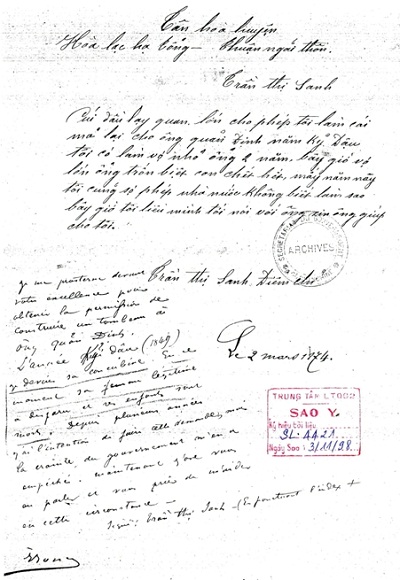 Tân hoà huyện
Hòa lạc hạ tổng – Thuận ngãi thôn.
Trần thị Sanh
Cúi đầu lạy quan lớn cho phép tôi làm cái
mả lại cho ông quản Định năm Kỷ Dậu
tôi có làm vợ nhỏ ông 2 năm, bây giờ vợ
lớn ông trốn biệt con chết hết, mấy năm nay
tôi cung sợ phép nhà nước không biết làm sao
bây giờ tôi liều mình tôi nói với ông xin ông giúp
cho tôi.
ARCHIVES
Trần thị Sanh, Điểm chỉ
Je me prosterne devant
votre excellence pour
obtenir la permission de
construire un tombeau à
ông quản Định.
L'année Kỷ Dâu (1849)
je devins sa concubine. En ce
moment sa femme légitime
a disparu et ses enfants sont
morts. Depuis plusieurs années
j'ai l'intention de faire cette demande, mais
la crainte du gouvernement m'en a
empêché. maintenant j'ose vous
en parler et vous prie de m'aider
en cette circonstance –
Signé: Trần Thị Sanh – (En pointant l'index +
Le 2 mars 1874.
TRUNG TÂM LTQG2
SAO Y.
Ký hiệu tài liệu
SL.4421
Ngày Sao: 3/11/98